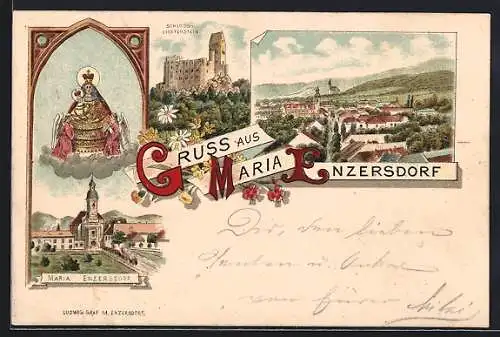 SCHLOSS
LICHTENSTEIN
GRUSS AUS
MARIA ENZERSDORF
MARIA ENZERSDORF
Dir, den lieben
Tanten u. Onkel
von Eurer Mitzi
LUDWIG GRAF M. ENZERSDORF.